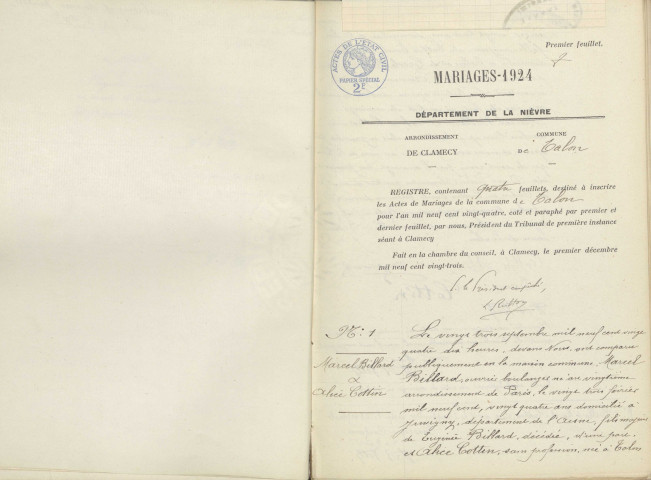 Premier feuillet.
ACTES DE L'ETAT CIVIL
PAPIER SPECIAL
2F
MARIAGES-1924
DÉPARTEMENT DE LA NIÈVRE
ARRONDISSEMENT
DE CLAMECY
COMMUNE
DE Talon
REGISTRE, contenant quatre feuillets, destiné à inscrire
les Actes de Mariages de la commune de Talon
pour l'an mil neuf cent vingt-quatre, coté et paraphé par premier et
dernier feuillet, par nous, Président du Tribunal de première instance
séant à Clamecy
Fait en la chambre du conseil, à Clamecy, le premier décembre
mil neuf cent vingt-trois.
P. le Président
N: 1
Marcel Billard
&
Alice Cottin
Le vingt trois septembre mil neuf cent vingt
quatre dix heures, devant Nous, ont comparu
publiquement en la maison commune: Marcel
Billard, ouvrier boulanger né au vingtième
arrondissement de Paris, le vingt trois février
mil neuf cent, vingt quatre ans domicilié à
Juvigny, département de l'Aisne, fils majeur
de Eugénie Billard, décédée, d'une part,
et Alice Cottin, sans profession, née à Talon